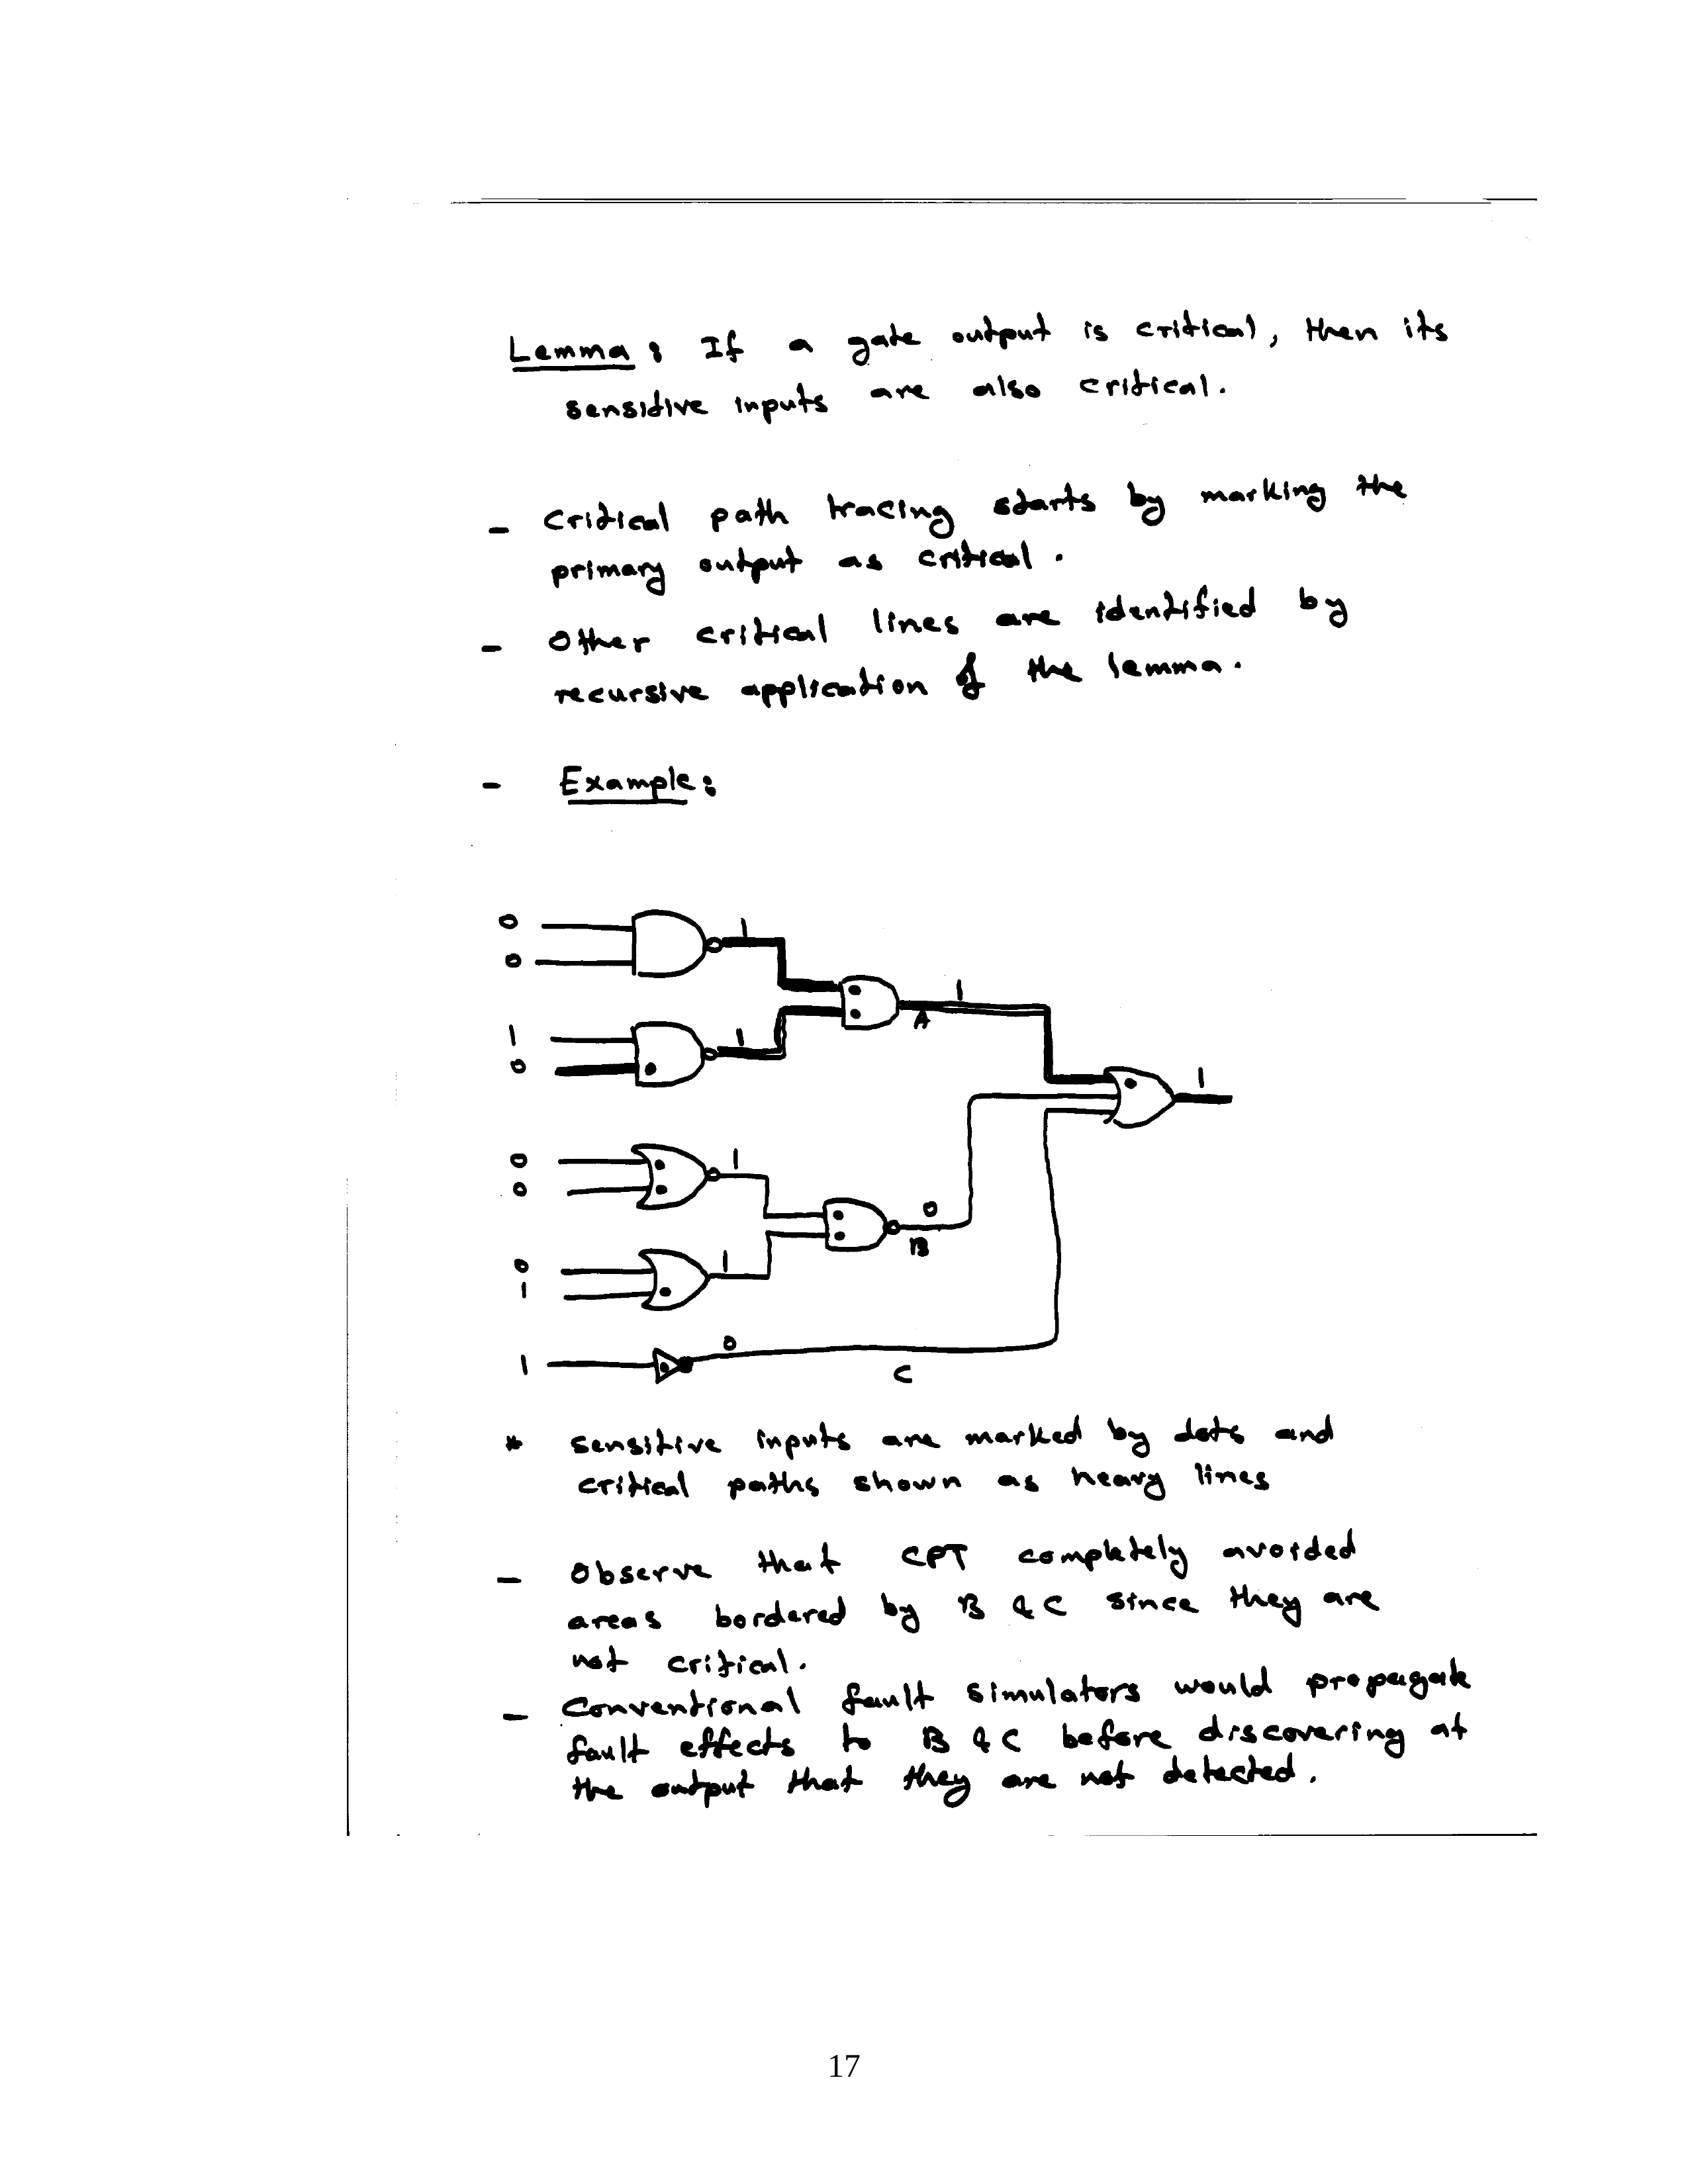 Lemma: If a gate output is critical, then its
sensitive inputs are also critical.
- Critical path tracing starts by marking the
primary output as critical.
- Other critical lines are identified by
recursive application of the lemma.
- Example:
0
1
0
1
A
1
1
0
1
0
1
0
0
B
0
1
1
0
1
C
* Sensitive inputs are marked by dots and
critical paths shown as heavy lines
- Observe that CPT completely avoided
areas bordered by B & C since they are
not critical.
- Conventional fault simulators would propagate
fault effects to B & C before discovering at
the output that they are not detected.
17